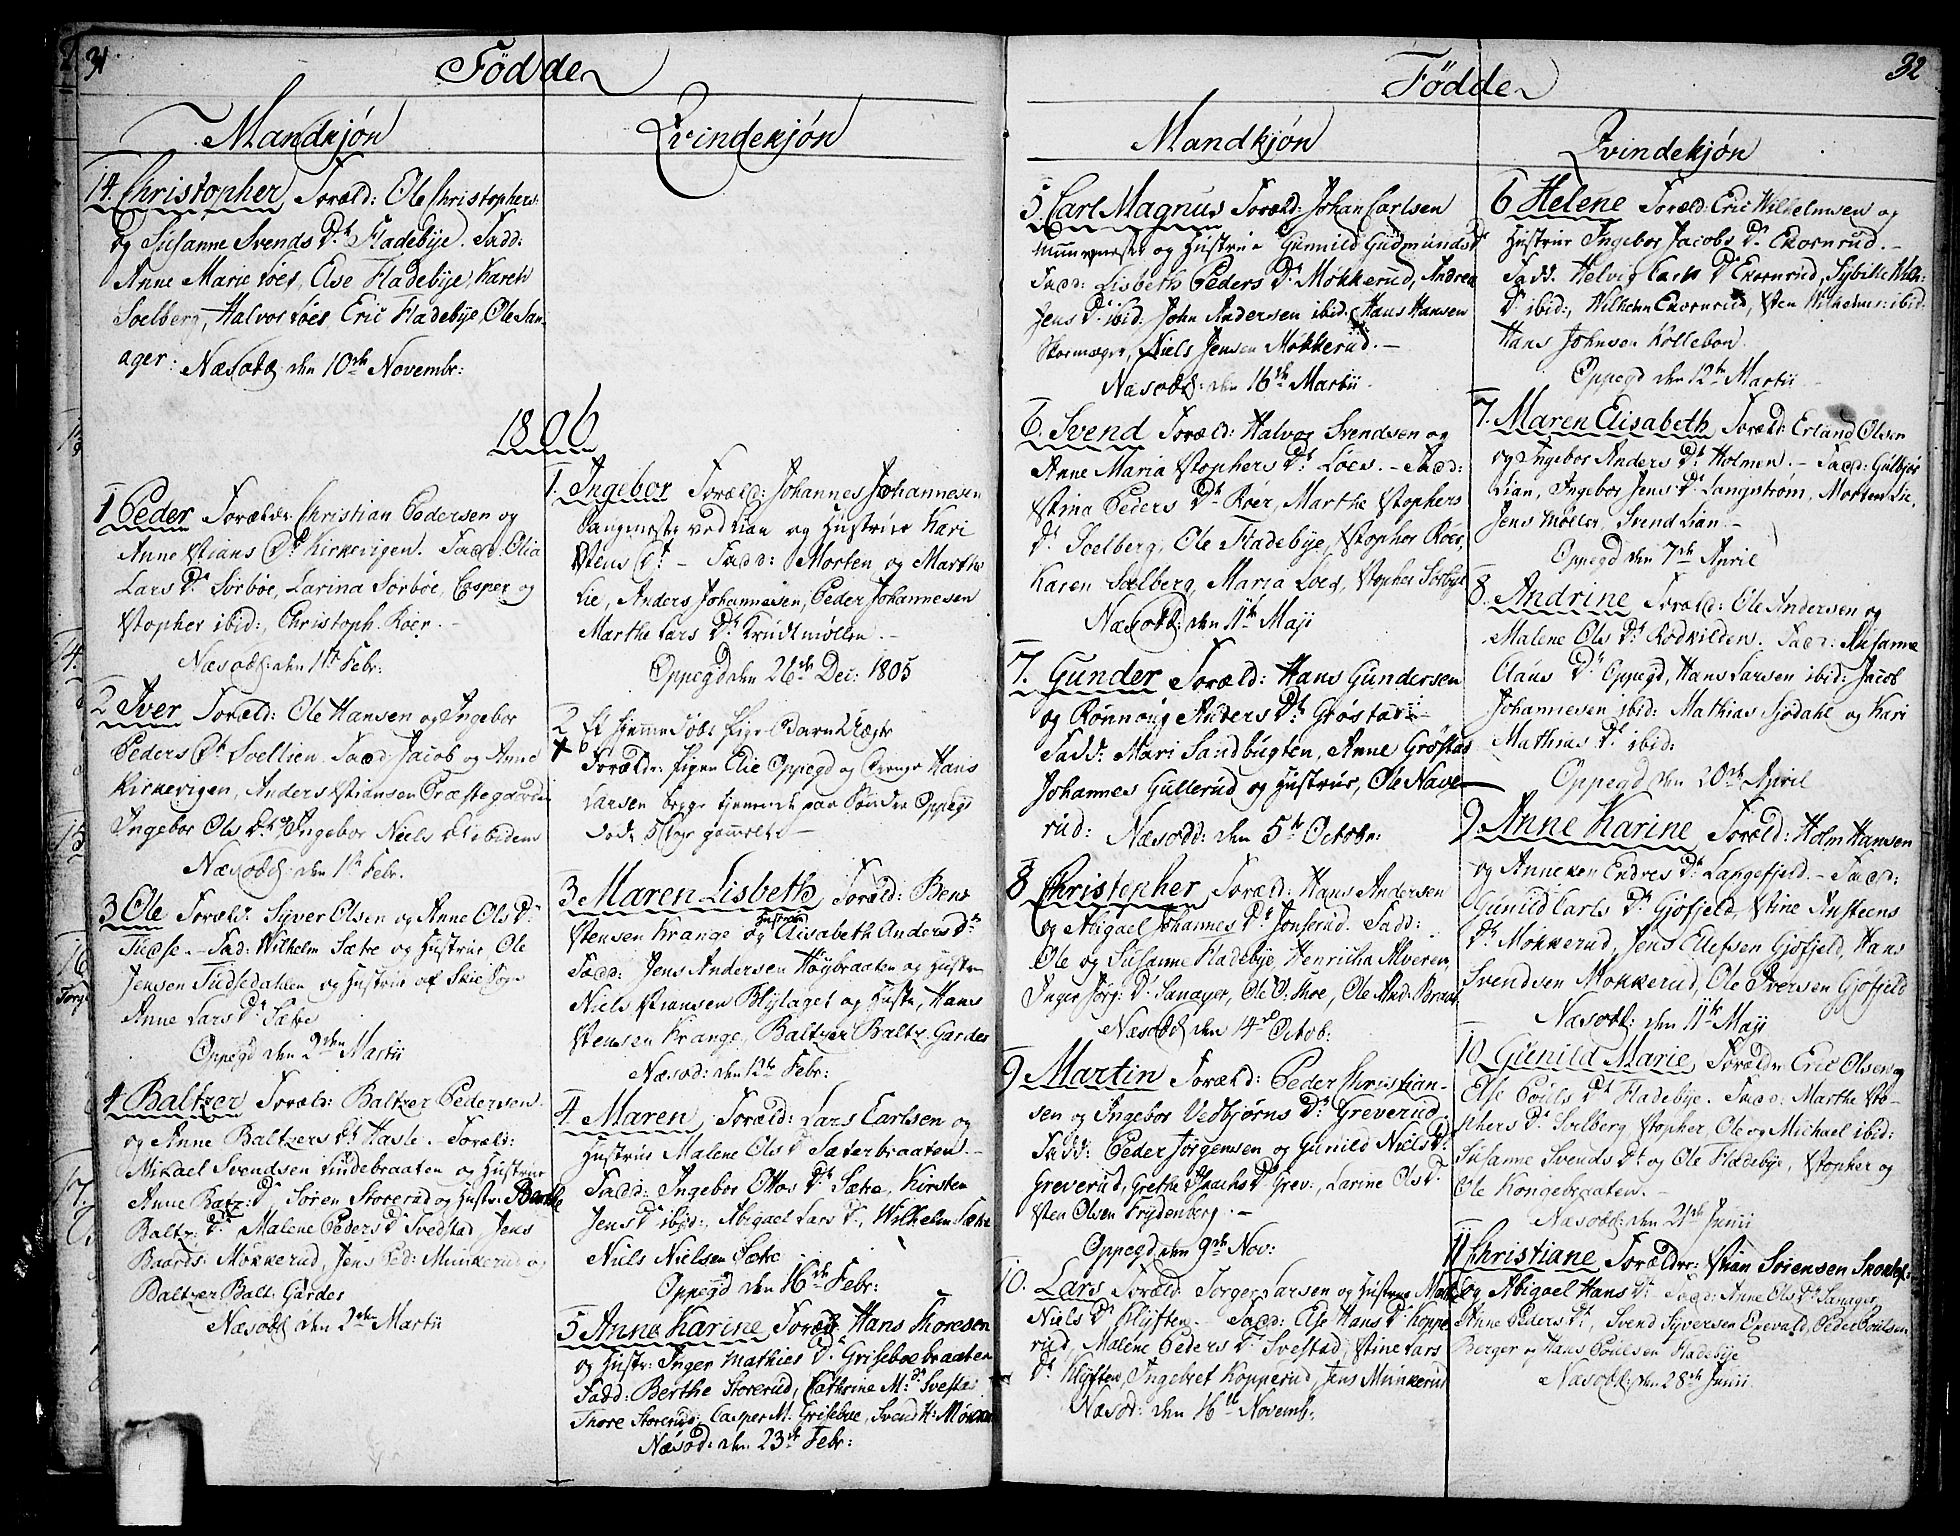 31
Fødde
Mandkjøn
Qvindekjøn
14. Christopher Foræld: Ole Christophers:
og Susanne Svends Dr Fladebÿe. Fadd:
Anne Marie Løes, Else Fladebÿe, Karen
Soelberg, Halvor Løes, Eric Fladebÿe, Ole San-
ager: Næsodd: den 10de Novembr:
1806
1 Peder Forældr Christian Pedersen og
Anne Stians Dr Kirkevigen. Fadd: Olia
Lars Dr Sørbøe, Larina Sørbøe, Casper og
Stopher ibid:, Christoph. Röer.
Næsodd: den 1ste Febr:
2 Iver Foræld: Ole Hansen og Ingebor
Peders Dr Soellien. Fadd: Jacob og Anne
Kirkevigen, Anders Stiansen Præstegaarden
Ingebor Ols Dr og Ingebor Niels Dr ibidem
Næsodd: den 1ste Febr.
3 Ole Foræld: Syver Olsen og Anne Ols Dr
Tudse. Fad: Wilhelm Sætre og Hustrue, Ole
Jensen Tudsedahlen og Hustrue af Skie Sogn
Anne Lars Dr Sætre
Oppegd den 2den Martii
4 Baltzer Foræld: Baltzer Pedersen
og Anne Baltzers Dr Hasle. Foræld:
Mikael Svendsen Lindebraaten og Hustrue
Anne Batz: Dr Søren Storerud og Hustr: Berthe
Baltz: Dr Malene Peders Dr Svedstad Jens
Baards: Møkkerud, Jens Ped: Munkerud og
Baltzer Balt: Garder
Næsodd: den 2den Martii
1. Ingebor Foræld: Johannes Johannesen
Saugmester ved Lian og Hustrue Kari
Stens Dr Fadd: Morten og Marthe
Lie, Anders Johannesen, Peder Johannesen
Marthe Lars Dr Krudtmøllen.
Oppegd den 26de Dec: 1805
2 Et hjemmedøbt Pigebarn Uægte
Forældr: Pigen Elie Oppegd og Drenge Hans
Larsen begge tjenende paa Sønder Oppegd
Død: 5 Dage gammelt
3 Maren Lisbeth Foræld: Bent
Stensen Krange og Hustrue Elisabeth Anders Dr
Fadd: Jens Andersen Høybraaten og Hustr:
Niels Stiansen Blylaget og Hustr, Hans
Stensen Krange, Baltzer Baltz. Garder
Næsod: den 12te Febr:
4 Maren Foræld: Lars Carlsen og
Hustrue Malene Ols Dr Sæterbraaten.
Fadd: Ingebor Ottos Dr Sætre, Kirsten
Jens Dr ibid:, Abigael Lars Dr, Wilhelm Sætre
Niels Nielsen Sætre
Oppegd den 16de Febr:
5 Anne Karine Foræld: Hans Thoresen
og Hustr: Inger Mathies Dr Griseboebraaten
Fadd: Berthe Storerud, Cathrine M: Dr Svestad
Thore Storerud, Casper M. Griseboe, Svend H: Møkker
Næsod: den 23de Febr:
32
Fødde
Mandkjøn
Qvindekjøn
5. Carl Magnus Foræld: Johan Carlsen
Muurmester og Hustrue Gunnild Gudmunds Dr
Fadd: Lisbeth Peders Dr Møkkerud, Andrea
Jens Dr ibid: John Andersen ibid, Hans Hansen
Skoemager, Niels Jensen Møkkerud.
Næsodd: den 16de Martii
6. Svend Foræld: Halvor Svendsen og
Anne Maria Stophers Dr Løes. Fadd:
Stina Peders Dr Röer, Marthe Stophers
Dr Soelberg, Ole Fladebÿe, Stopher Röer,
Karen Soelberg, Maria Løes, Stopher Sørbÿe
Næsodd: den 11te Maji
7. Gunder Foræld: Hans Gundersen
og Rønnoug Anders Dr Grøstad
Fadd: Mari Sandbugten, Anne Grøstad
Johannes Gullerud og Hustrue, Ole Nave-
rud: Næsodd: den 5te Octobr:
8 Christopher Foræld: Hans Andersen
og Abigael Johannes Dr Jonserud. Fadd:
Ole og Susanne Fladebÿe, Henricha Alveren,
Inger Jørg: Dr Sanager, Ole O: Skoe, Ole And: Braat
Næsodd den 14de Octob:
9 Martin Foræld: Peder Christian-
sen og Ingebor Vedbjørns Dr Greverud
Fadd: Peder Jørgensen og Gunild Niels Dr
Greverud, Grethe Isachs Dr Grev:, Larine Ols Dr
Sten Olsen Frydenberg.
Oppegd den 9de Nov:
10. Lars Foræld Torger Larsen og Hustrue Marthe
Niels Dr Klÿften. Fadd: Else Hans Dr Koppe-
rud, Malene Peders Dr Svestad, Stine Lars
Dr Klÿften, Ingebret Kopperud, Jens Munkerud
Næsod: den 16de Novemb:
6 Helene Foræld: Eric Wilhelmsen og
Hustrue Ingebor Jacobs Dr Ekornrud.
Fadd: Helvig Lars Dr Ekornrud, Sybille Wilh:
Dr ibid:, Wilhelm Ekornrud, Sten Wilhelms: ibid:
Hans Johnsen Kollebon.
Oppegd den 12te Martii
7. Maren Elisabeth Foræld: Erland Olsen
og Ingebor Anders Dr Holmen. Fadd: Gulbjør
Lian, Ingebor Jens Dr Langstrøm, Morten Lie,
Jens Møller, Svend Lian.
Oppegd den 7de April
8. Andrine Foræld: Ole Andersen og
Malene Ols Dr Rødkilden. Fadd: Susanne
Claus Dr Oppegd, Hans Larsen ibid: Jacob
Johannesen ibid: Mathias Sjødahl og Kari
Mathias Dr ibid:
Oppegd den 20de April
9. Anne Karine Foræld: Holm Hansen
og Anneken Endres Dr Langefjeld. Fadd:
Gunild Carls Dr Gjøfjeld, Stine Austeens
Dr Møkkerud, Jens Ellefsen Gjøfjeld, Hans
Svendsen Møkkerud, Ole Iversen Gjøfjeld
Næsodd: den 11te Maji
10. Gunild Marie Forældr Eric Olsen og
Else Pouls Dr Fladebÿe. Fadd: Marthe Sto-
phers Dr Soelberg Stopher, Ole og Michael ibid:
Susanne Svends Dr og Ole Fladebÿe, Stopher og
Ole Kongebraaten.
Næsodd: den 21de Junii
11 Christiane Forældre: Stian Sørensen Skoklef:
og Abigael Hans Dr Fadd: Anne Ols Dr Sanager,
Anne Peders Dr, Svend Syversen Exevald, Peder Poulsen
Berger og Hans Poulsen Fladebÿe
Næsodd: den 28de Junii